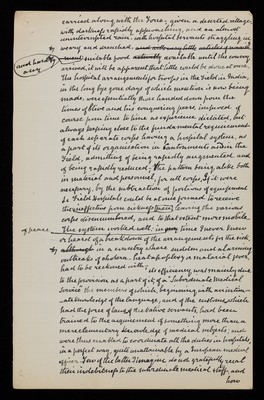 carried along with the Force, given a deserted village,
with darkness rapidly approaching, and an almost
uninterrupted rain, with hospital servants straggling in
weary and drenched,
and hardly
any
suitable food available until the convoy
arrived, it will be apparent that little could be done at once.
The hospital arrangements for troops in the Field in India,
in the long bye gone days of which mention is now being
made, were essentially those handed down from the
times of Clive and Coote; being improved of
course from time to time as experience dictated, but
always keeping close to the fundamental requirement
of each separate corps having a hospital system, as
a part of its organisation in Cantonments and in the
Field, admitting of being rapidly augmented and
of being rapidly reduced; the pattern being alike both
in material and personnel, for all corps. If it were
necessary, by the subtraction of portions of equipment
a Field Hospital could be at once formed to receive
the ineffective from leaving the various
corps disencumbered, and to that extent more mobile.
of peace,
The system worked well, in time I never knew
or heard of a breakdown of the arrangements for the sick
in a country where sudden and alarming
outbreaks of cholera, heat apoplexy & malarial fever,
had to be reckoned with; its efficiency was mainly due
to the provision as a part of it of a "Subordinate Medical
Service" the members of which, beginning with an intim-
-ate knowledge of the language, and of the customs, which
had the force of law, of the native servants, had been
trained to the acquirement of something more than a
mere elementary knowledge of medical subjects, and
were thus enabled to coordinate all the duties in hospitals,
in a perfect way, quite unattainable by a European medical
officer. Few of the latter I imagine do not gratefully recall
their indebtedness to the subordinate medical staff, and
how